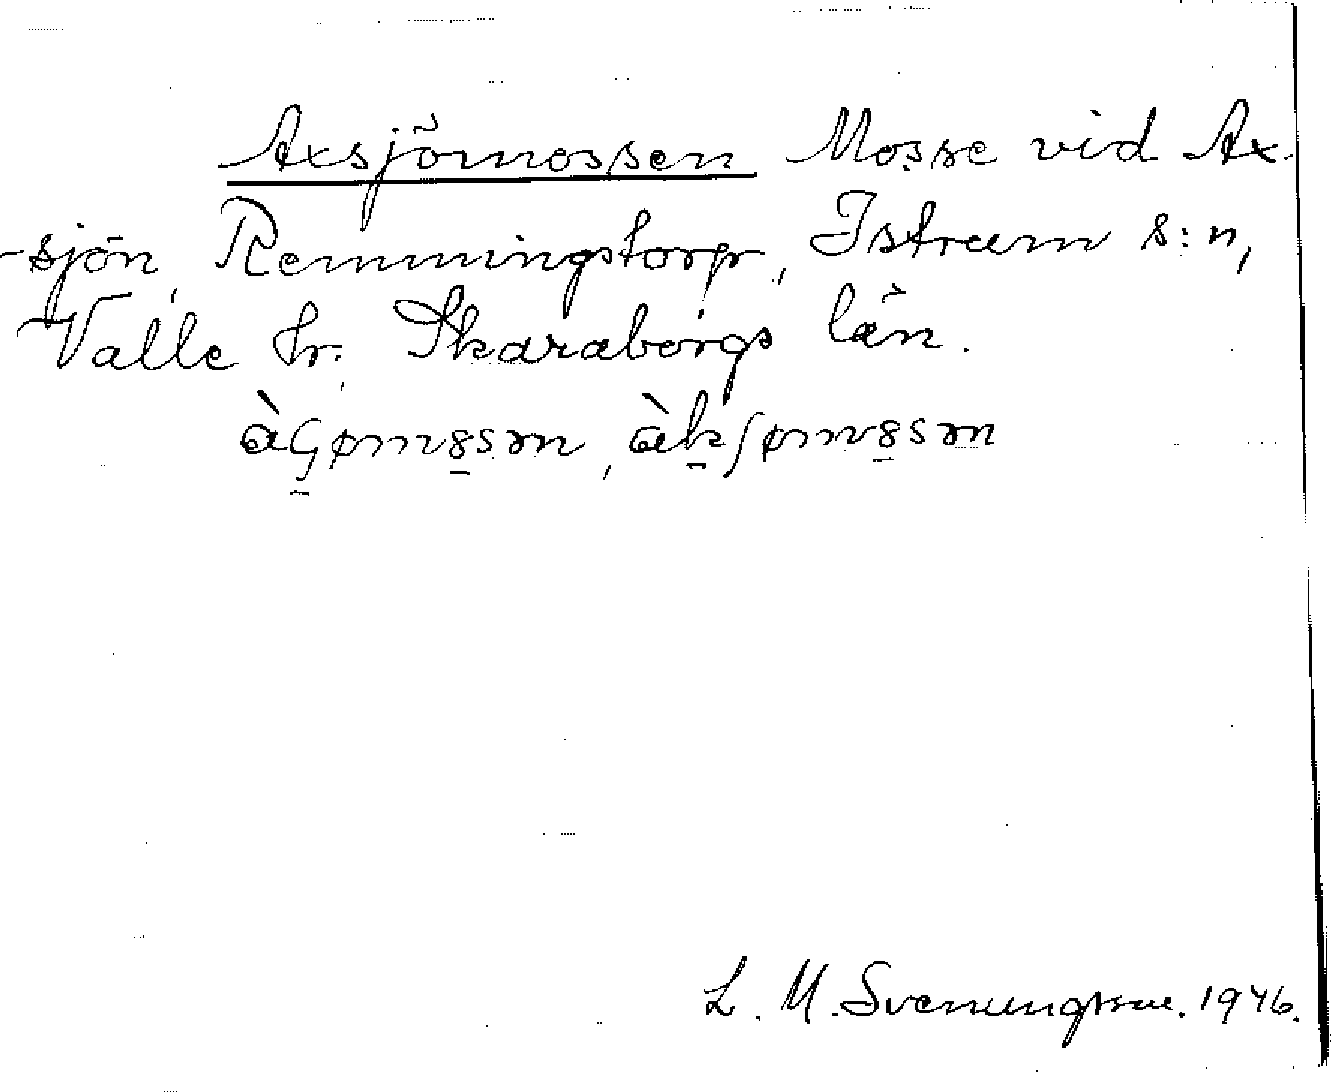 Axsjömossen Mosse vid Ax-
-sjön, Remmingstorp, Istrum s:n,
Valle hr. Skaraborgs län.
L. M. Svenungsson. 1946.